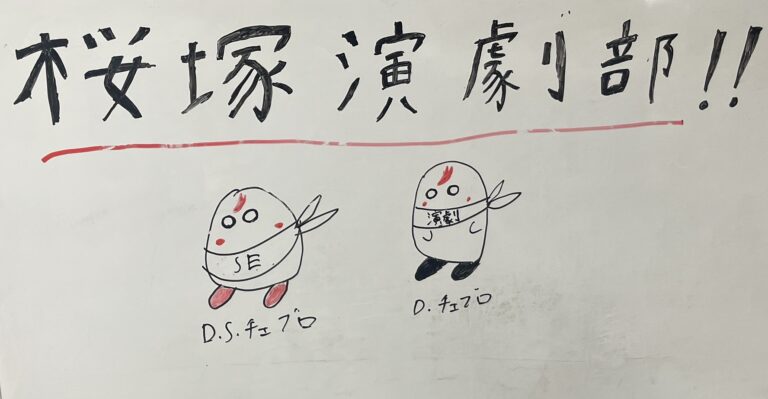 桜塚演劇部!!
SE
演劇
D.S.チェブロ
D.チェブロ